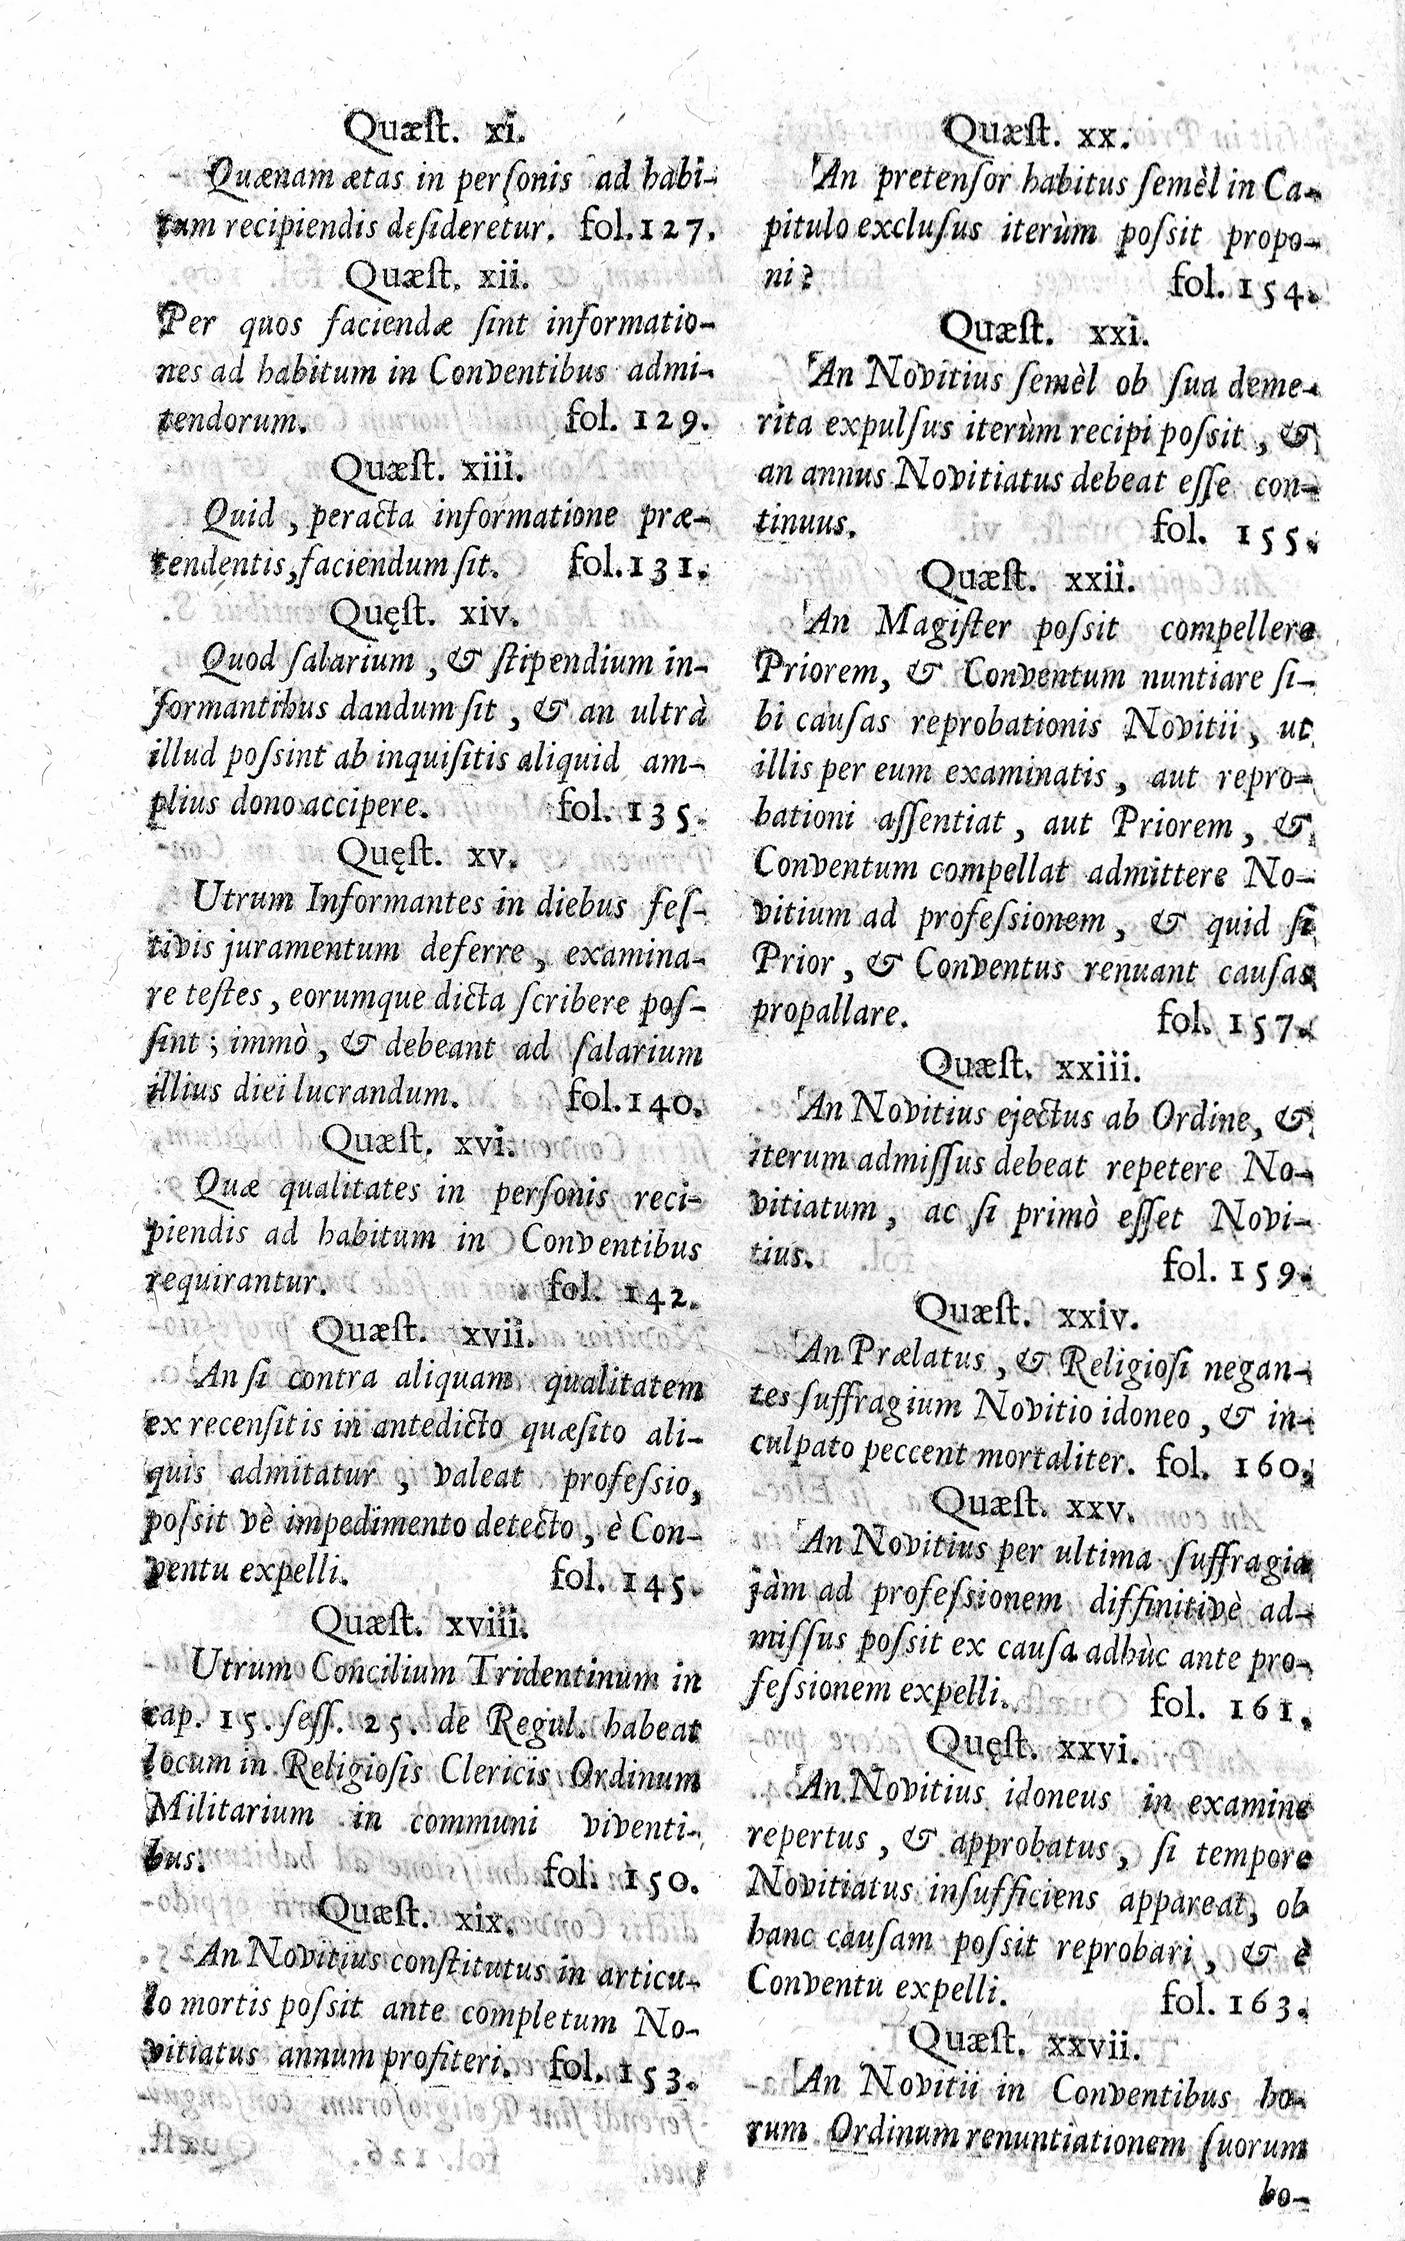 Quæſt. xi.
Quænam ætas in perſonis ad habi-
tum recipiendis deſideretur. fol. 127.
Quæſt. xii.
Per quos faciendæ ſint informatio-
nes ad habitum in Conventibus admi-
tendorum. fol. 129.
Quæſt. xiii.
Quid, peracta informatione præ-
tendentis, faciendum ſit. fol. 131.
Quęſt. xiv.
Quod ſalarium, & ſtipendium in-
formantibus dandum ſit, & an ultrà
illud poſsint ab inquiſitis aliquid am-
plius dono accipere. fol. 135.
Quęſt. xv.
Utrum Informantes in diebus feſ-
tivis juramentum deferre, examina-
re teſtes, eorumque dicta ſcribere poſ-
ſint; immò, & debeant ad ſalarium
illius diei lucrandum. fol. 140.
Quæſt. xvi.
Quæ qualitates in perſonis reci-
piendis ad habitum in Conventibus
requirantur. fol. 142.
Quæſt. xvii.
An ſi contra aliquam qualitatem
ex recenſitis in antedicto quæſito ali-
quis admitatur, valeat profeſsio,
poſsit vè impedimento detecto, è Con-
ventu expelli. fol. 145.
Quæſt. xviii.
Utrum Concilium Tridentinum in
cap. 15. ſeſſ. 25. de Regul. habeat
locum in Religioſis Clericis Ordinum
Militarium in communi viventi-
bus. fol. 150.
Quæſt. xix.
An Novitius conſtitutus in articu-
lo mortis poſsit ante completum No-
vitiatus annum profiteri. fol. 153.
Quæſt. xx.
An pretenſor habitus ſemèl in Ca-
pitulo excluſus iterùm poſsit propo-
ni? fol. 154.
Quæſt. xxi.
An Novitius ſemèl ob ſua deme-
rita expulſus iterùm recipi poſsit, &
an annus Novitiatus debeat eſſe con-
tinuus. fol. 155.
Quæſt. xxii.
An Magiſter poſsit compellere
Priorem, & Conventum nuntiare ſi-
bi cauſas reprobationis Novitii, ut
illis per eum examinatis, aut repro-
bationi aſſentiat, aut Priorem, &
Conventum compellat admittere No-
vitium ad profeſsionem, & quid ſi
Prior, & Conventus renuant cauſas
propallare. fol. 157.
Quæſt. xxiii.
An Novitius ejectus ab Ordine, &
iterum admiſſus debeat repetere No-
vitiatum, ac ſi primò eſſet Novi-
tius. fol. 159.
Quæſt. xxiv.
An Prælatus, & Religioſi negan-
tes ſuffragium Novitio idoneo, & in-
culpato peccent mortaliter. fol. 160.
Quæſt. xxv.
An Novitius per ultima ſuffragia
jàm ad profeſsionem diffinitivè ad-
miſſus poſsit ex cauſa adhùc ante pro-
feſsionem expelli. fol. 161.
Quęſt. xxvi.
An Novitius idoneus in examine
repertus, & approbatus, ſi tempore
Novitiatus inſufficiens appareat, ob
hanc cauſam poſsit reprobari, & è
Conventu expelli. fol. 163.
Quæſt. xxvii.
An Novitii in Conventibus ho-
rum Ordinum renuntiationem ſuorum
bo-